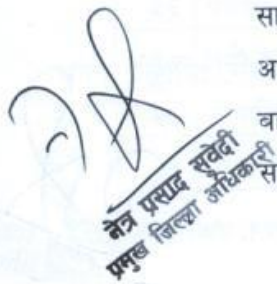 सा
अ
बा
स
नेत्र प्रसाद सुवेदी
प्रमुख जिल्ला अधिकारी